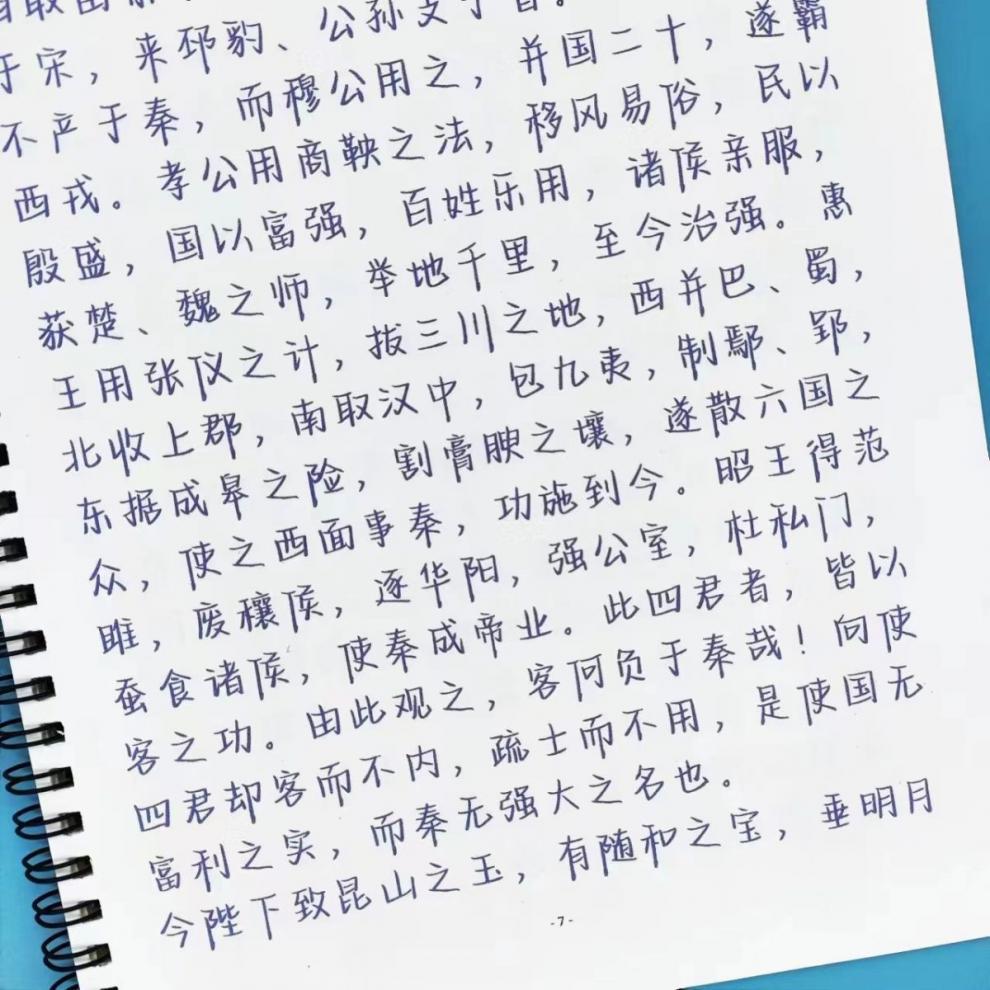 于宋，来邳豹、公孙支于
不产于秦，而穆公用之，并国二十，遂霸
西戎。孝公用商鞅之法，移风易俗，民以
殷盛，国以富强，百姓乐用，诸侯亲服，
获楚、魏之师，举地千里，至今治强。惠
王用张仪之计，拔三川之地，西并巴、蜀，
北收上郡，南取汉中，包九夷，制鄢、郢，
东据成皋之险，割膏腴之壤，遂散六国之
众，使之西面事秦，功施到今。昭王得范
雎，废穰侯，逐华阳，强公室，杜私门，
蚕食诸侯，使秦成帝业。此四君者，皆以
客之功。由此观之，客何负于秦哉！向使
四君却客而不内，疏士而不用，是使国无
富利之实，而秦无强大之名也。
今陛下致昆山之玉，有随和之宝，垂明月
-7-